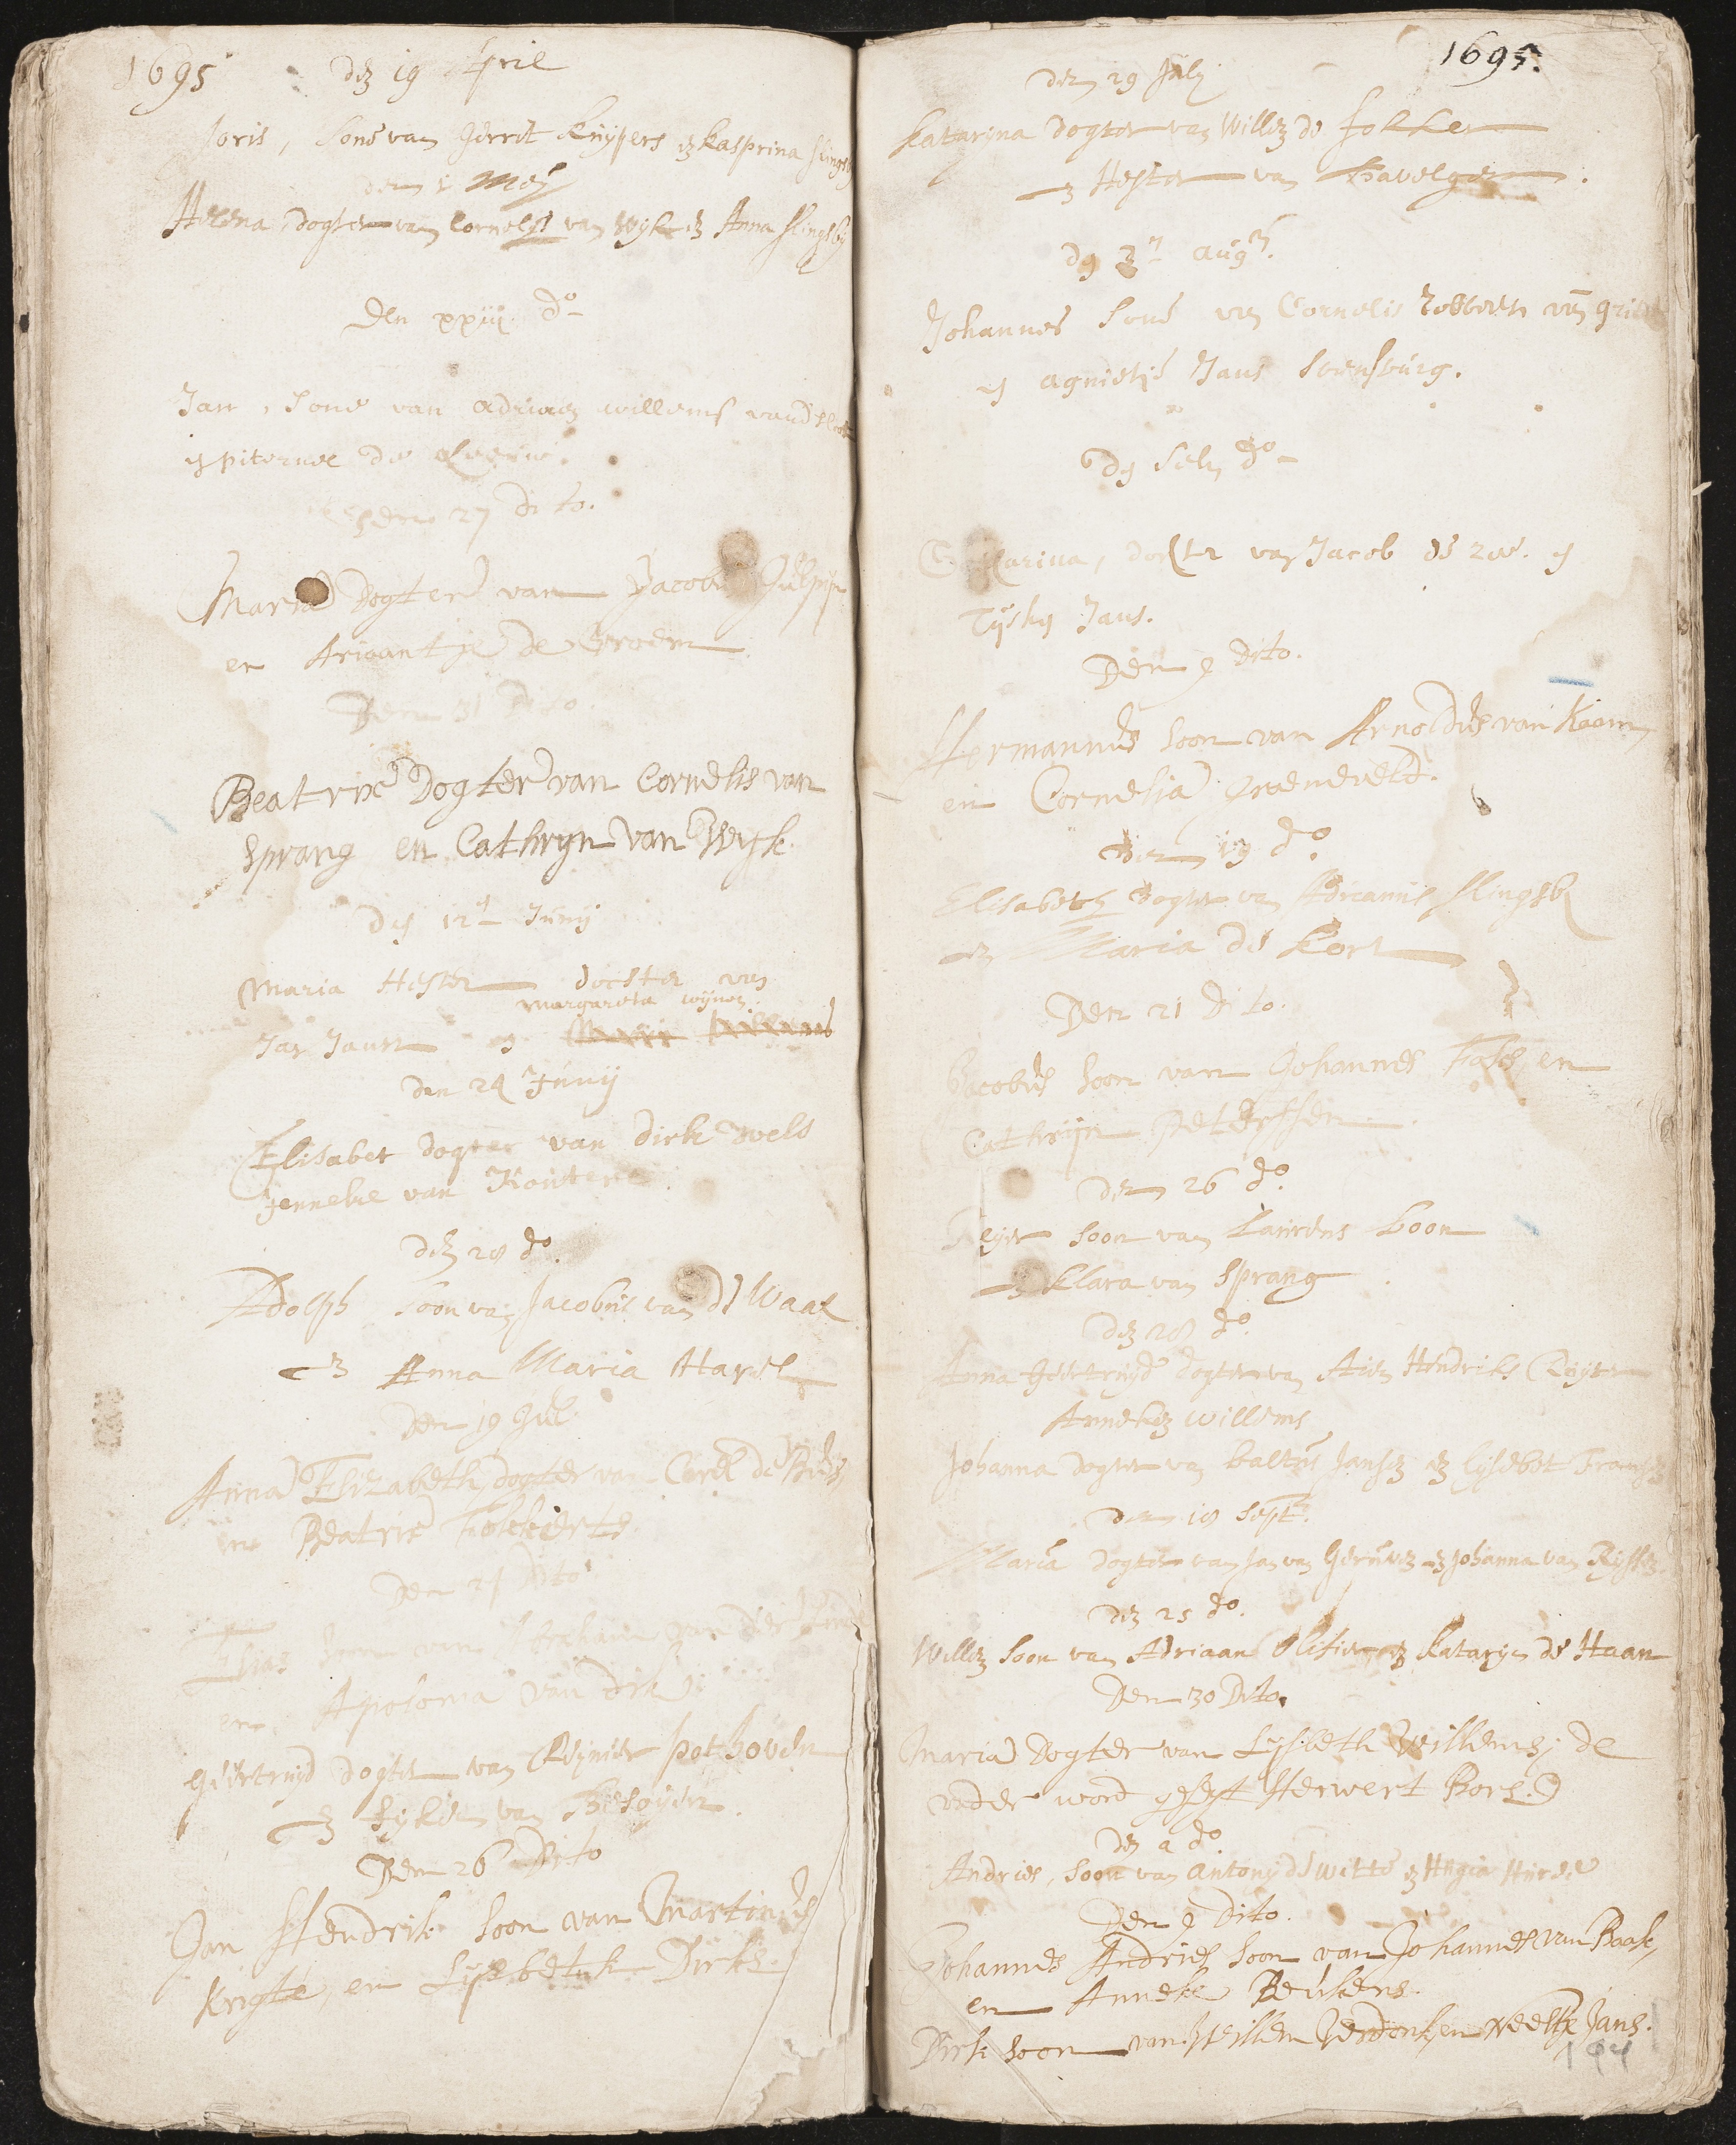 1695
den 19 April
Joris, Sone van Gerrit Kuijpers en Kasprina Slingsb
den 1 Meij
Helena, Dogter van Cornelis van Wijk en Anna Slingsby
Den xxiij do
Jan, Sone van adriaen willems vand
en pitornel de
den 27 dito.
Maria Dogter van Jacobus
en Ariaantje de Groen
Den 31 Dito.
Beatrix Dogter van Cornelis van
Sprang en Cathryn van Wyk
den 12 Junij
Maria Hester docster van
margareta wijnen
Jan Jansen en
Den 24 Junij
Elisabet dogter van dirk wels
Jenneke van Koutere
den 28 do.
Adolph soon van Jacobus van de Waal
en Anna Maria Harel
Den 19 Jul.
Anna Elizabeth Dogter van Carel de
en Beatris Folkkerts
Den 21 Dito
Elias soon van Abraham van der
en Apolonia van
Geertruijd Dogter van Reijnier pothoven
en Sijken van Besoijen
Den 26 Dito
Jan Hendrik Soon van Martinus
Krigte, en Lysbeth Dirks.
1695.
den 29 July
Katarina Dogter van Willem de Jokker
en Hester van Havelge
den 3 augti.
Johannes Sone van Cornelis Robberts van
en agnietje Jans Svensburg.
den selv do
Catarina, docter van Jacob de
Tijsky Jans.
Den 9 Dito.
Hermannus Soon van Arnoldus van Kaam,
en Cornelia Groeneveld.
den 19 do.
Elisabeth Dogter van Adrianus Slingsby
en Maria de Kort
Den 21 dito.
Jacobus Soon van Johannes Fasch en
Cathrijn Peterssen.
den 26 do.
Reijer soon van Laurens boon
en Klara van Sprang
den 28 do.
Anna Geertruijd Dogter van Arien Hendriks
Anneken Willems
Johanna dogter van Baltus Jansen en Lijsebet Fransen
den 18 Sept.
Maria Dogter van Jan van en Johanna van Rijsken
den 25 do.
Willem Soon van Adriaan Olifier en Katarijn de Haan
Den 30 Dito.
Maria Dogter van Lijsbeth Willems; de
vader word gesegt Herwert Bors.
den a do
Andries, Soon van antonij de witte en
Den 9 Dito.
Johannes Andries Soon van Johannes van Baak,
en Anneke Beukens.
Dirk soon van Willem Verdonk, en Neeltje Jans.
194